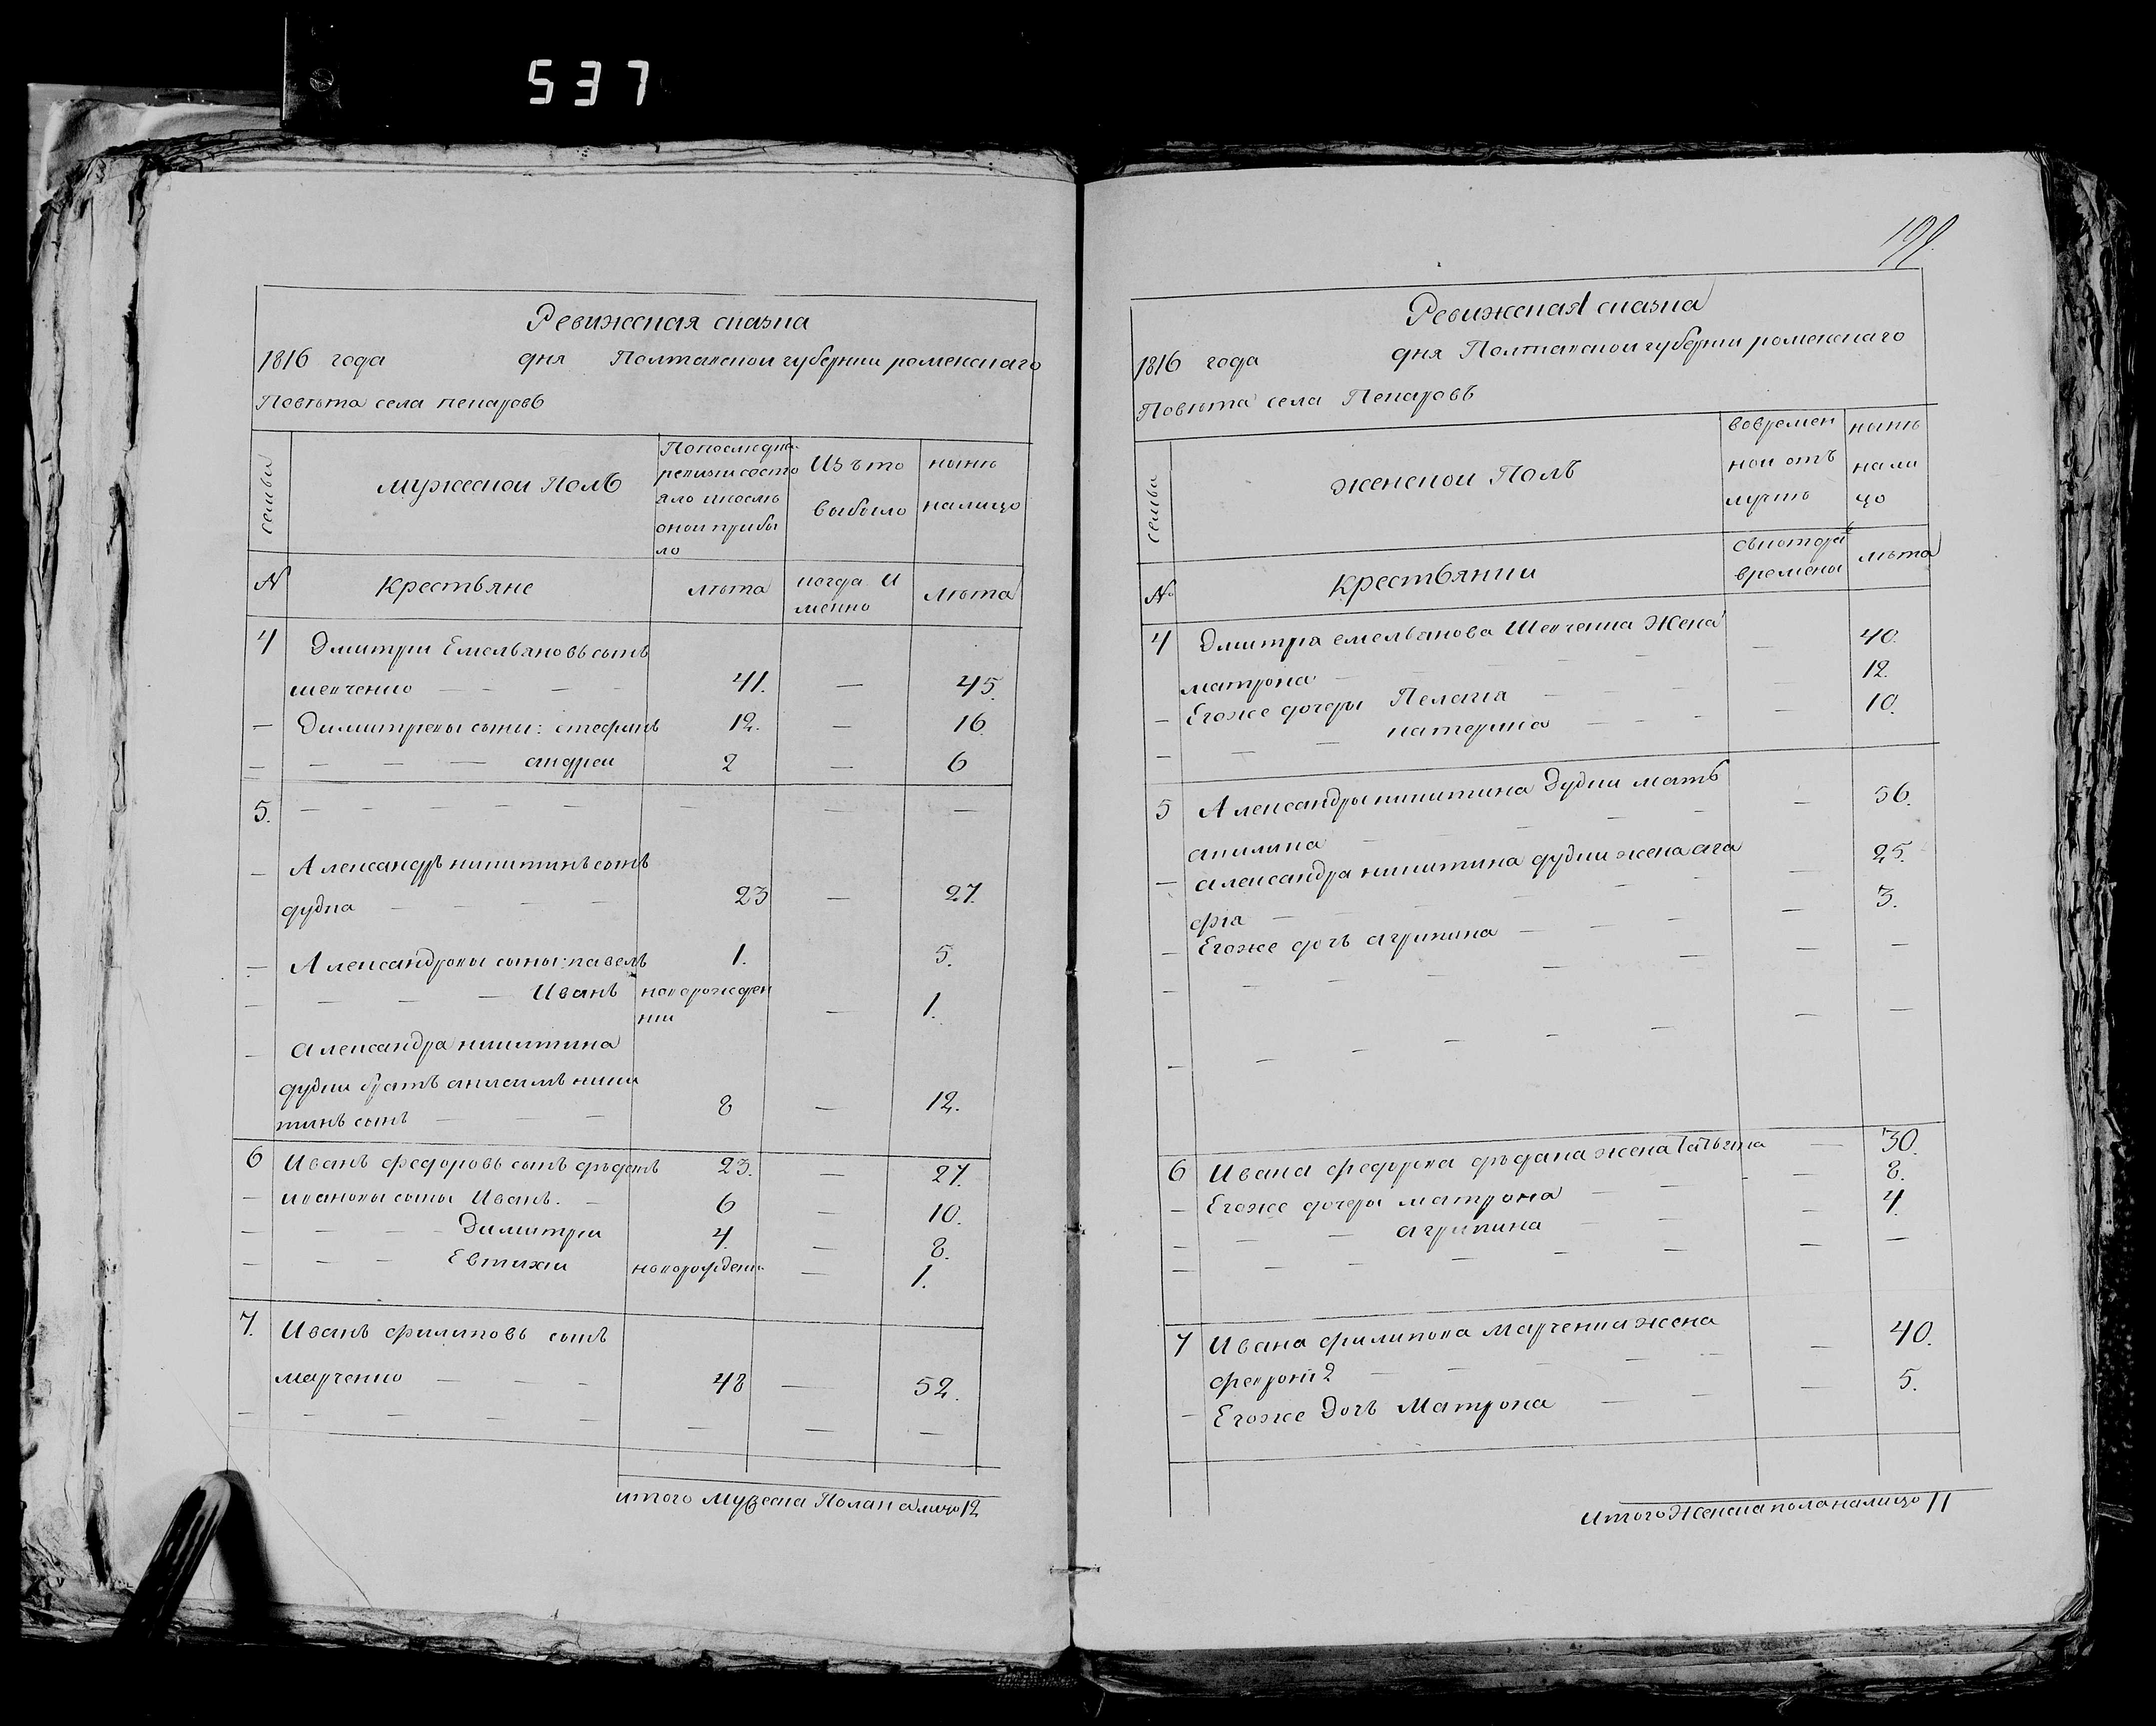 537
Ревижская сказка
1816 года дня Полтавской губернии роменскаго
Повѣта села пекаровъ
семьи
мужескои Полъ
По последнеи
ревизии состо
яло и после
оной прибы
ло
Изъ то
выбыло
нынѣ
налицо
№
крестьяне
лѣта
когда и
менно
лѣта
4 Дмитри Емельяновъ сынъ
шевченко — — — — 41. — 45.
— Димитревы сыны: стефанъ 12. — 16.
— — — — андреи 2 — 6
5. — — — — — — — —
— Александръ никитинъ сынъ
дудка — — — — 23 — 27.
— Александровы сыны: павелъ 1. 5.
— — — — Иванъ новорожден
нии — 1.
— александра никитина
дудки братъ анисимъ ники
тинъ сынъ — — — 8 — 12.
6 Иванъ федоровъ сынъ дѣданъ 23. — 27.
— ивановы сыны Иванъ. — 6 — 10.
— — — — Димитри 4. — 8.
— — — Евтихи новорождени — 1.
7. Иванъ филиповъ сынъ
марченко — — — 48 — 52.
— — — — — — — —
итого Мужеска Пола налицо 12
Ревижская сказка
1816 года дня Полтавской губернии роменскаго
Повѣта села Пекаровъ
семьи
женской Полъ
вовремен
нои отъ
лучкѣ
нынѣ
нали
цо
№
крестьянки
съ котораг
времены
лѣта
4 Дмитрія емельянова Шевченка Жена — 40.
матрона — — — — —
— Егоже дочеры Пелагія — — — 12.
— — — катерина — — — — 10.
5 Александры никитина Дудки мать — 56.
акилина — — — —
— александра никитина дудки жена ага — 25.
фія — — — — —
— Егоже дочъ агрипина — — — — 3.
— — — — — — — —
— — — — — — — —
6 Ивана федорова дѣдана жена татьяна — 30.
— Егоже дочеры матрона — — — 8.
— — — агрипина — — — 4.
— — — — — — — —
7 Ивана филипова Марченка жена — 40.
феврониѣ — — — —
— Егоже Дочъ Матрона — — — 5.
итого Женска пола налицо 11